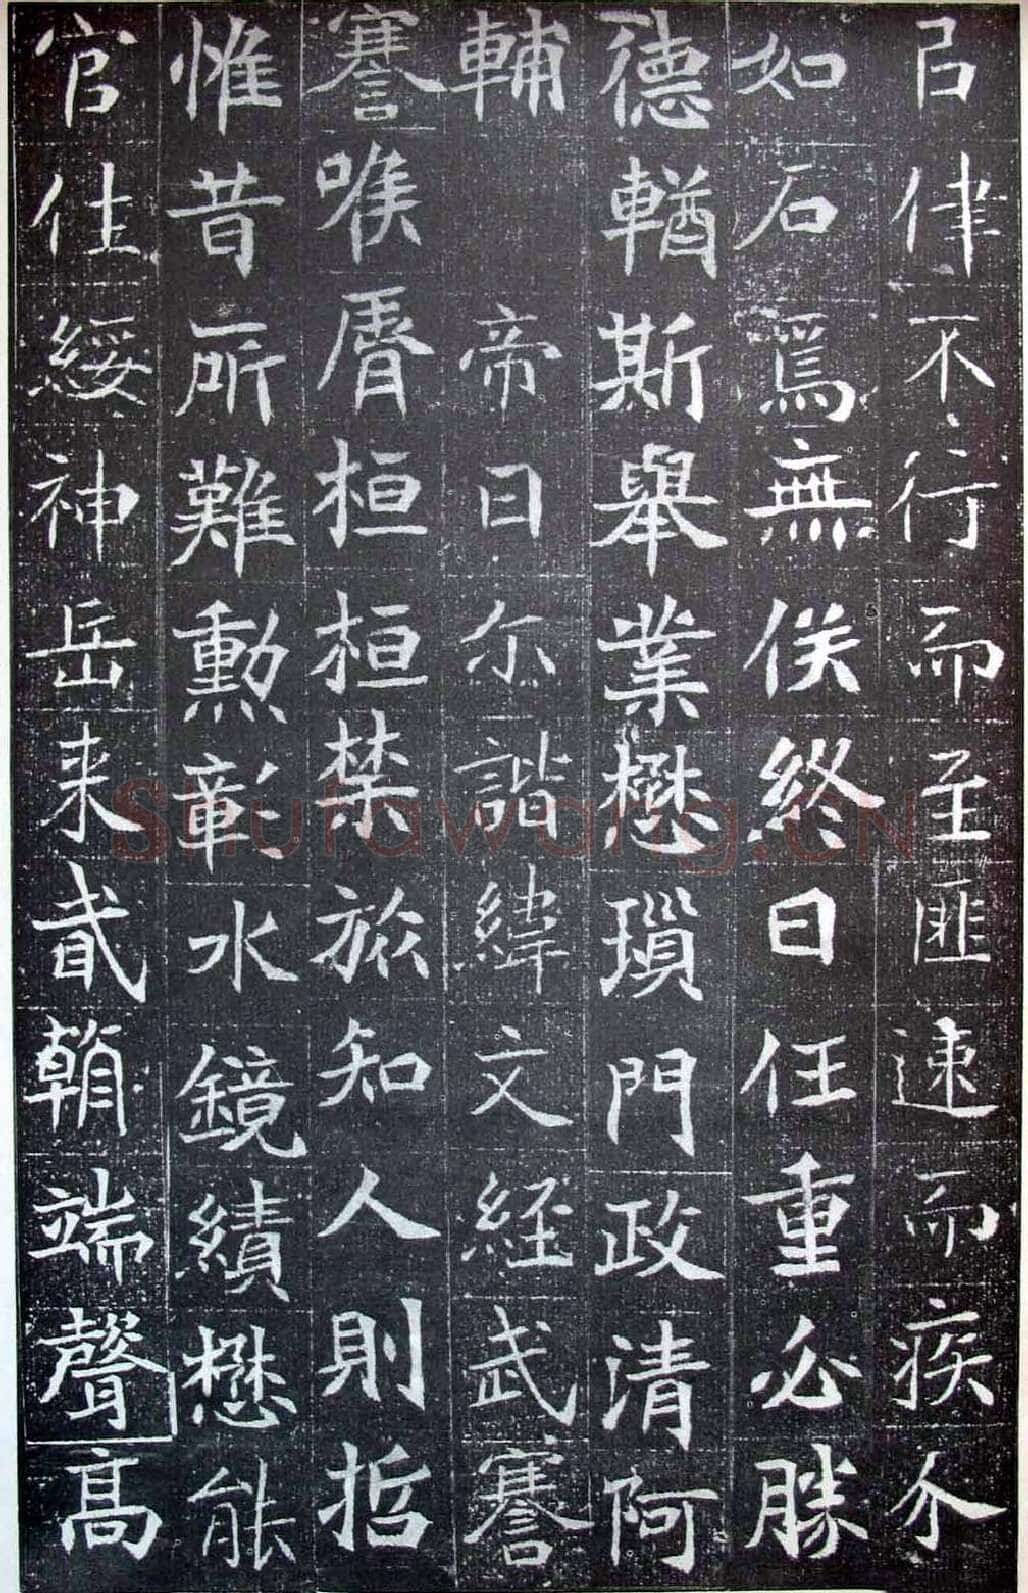 吕律不行而至匪速而疾介
如石焉無俟終日任重必勝
德輶斯舉業懋瑣門政清阿
輔 帝曰尔諧緯文經武謇
謇喉脣桓桓禁旅知人則哲
惟昔所難勳彰水鏡績懋能
官往綏神岳来貳朝端聲高
Shufawang.CN